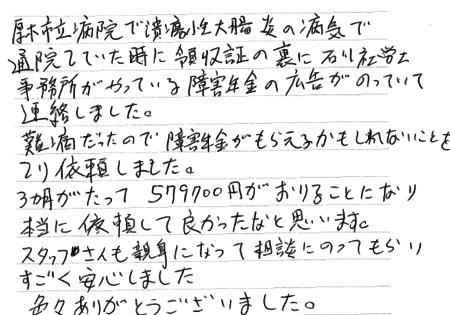 厚木市立病院で潰瘍性大腸炎の病気で
通院していた時に領収証の裏に石川社労士
事務所がやっている障害年金の広告がのっていて
連絡しました。
難病だったので障害年金がもらえるかもしれないことを
しり依頼しました。
3カ月がたって 579700円がおりることになり
本当に依頼して良かったなと思います。
スタッフさんも親身になって相談にのってもらい
すごく安心しました
色々ありがとうございました。